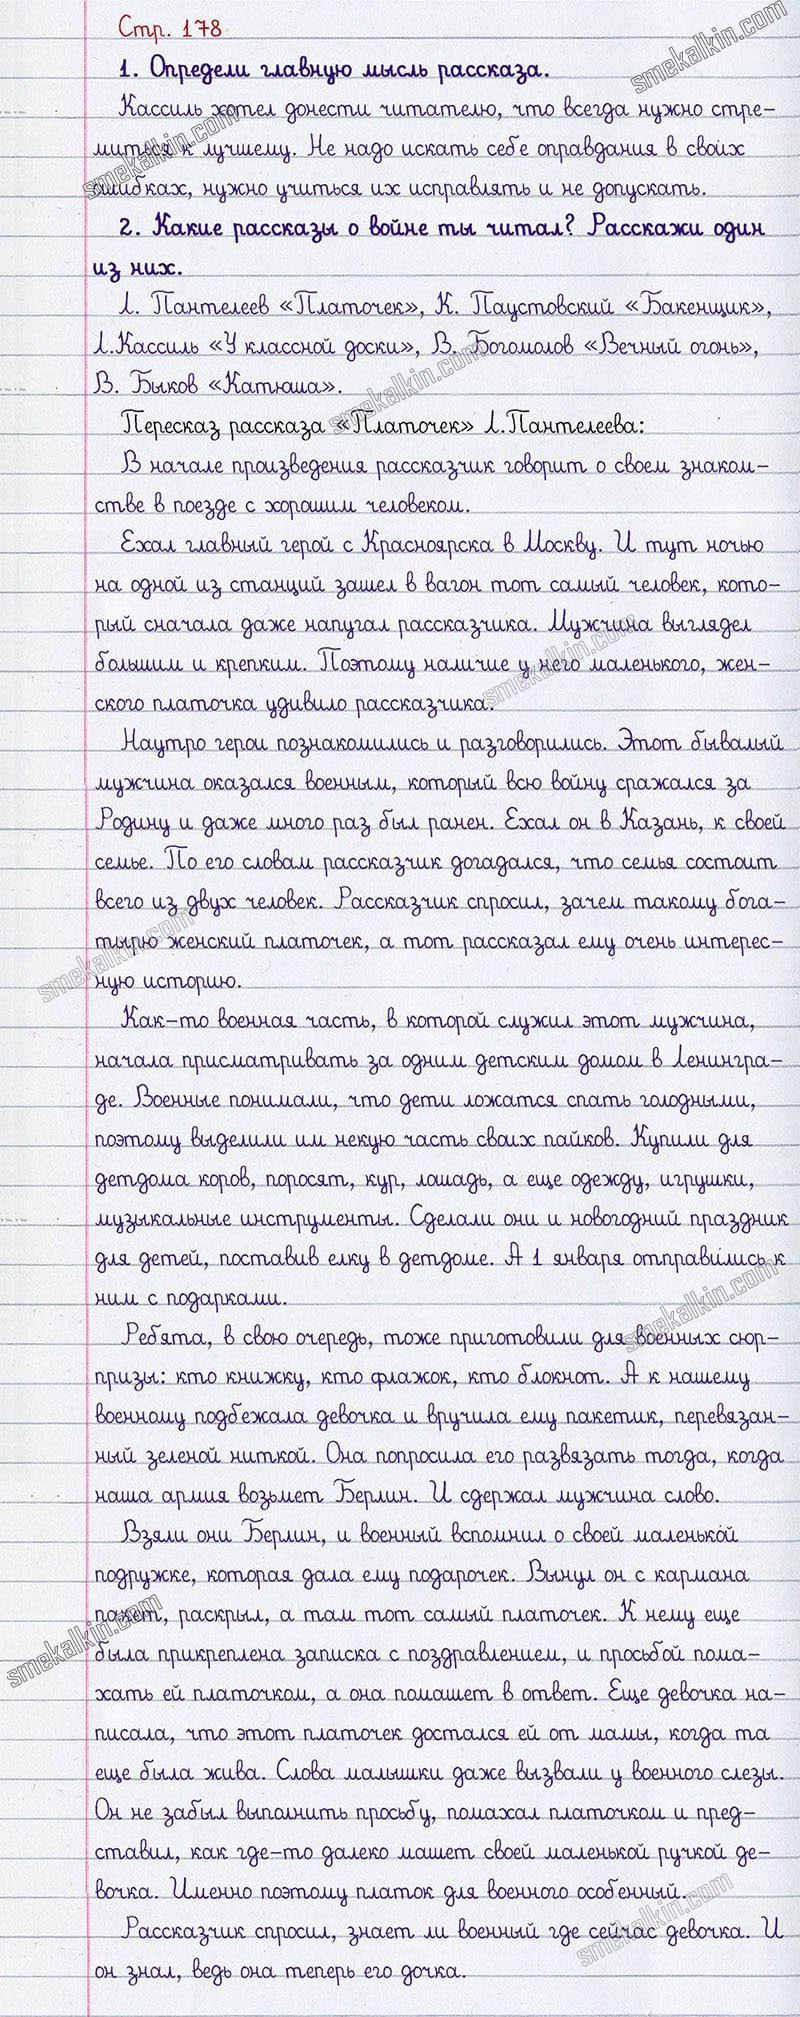 Стр. 178
1. Определи главную мысль рассказа.
Кассиль хотел донести читателю, что всегда нужно стре-
миться к лучшему. Не надо искать себе оправдания в своих
ошибках, нужно учиться их исправлять и не допускать.
2. Какие рассказы о войне ты читал? Расскажи один
из них.
Л. Пантелеев «Платочек», К. Паустовский «Бакенщик»,
Л.Кассиль «У классной доски», В. Богомолов «Вечный огонь»,
В. Быков «Катюша».
Пересказ рассказа «Платочек» Л.Пантелеева:
В начале произведения рассказчик говорит о своем знаком-
стве в поезде с хорошим человеком.
Ехал главный герой с Красноярска в Москву. И тут ночью
на одной из станций зашел в вагон тот самый человек, кото-
рый сначала даже напугал рассказчика. Мужчина выглядел
большим и крепким. Поэтому наличие у него маленького, жен-
ского платочка удивило рассказчика.
Наутро герои познакомились и разговорились. Этот бывалый
мужчина оказался военным, который всю войну сражался за
Родину и даже много раз был ранен. Ехал он в Казань, к своей
семье. По его словам рассказчик догадался, что семья состоит
всего из двух человек. Рассказчик спросил, зачем такому бога-
тырю женский платочек, а тот рассказал ему очень интерес-
ную историю.
Как-то военная часть, в которой служил этот мужчина,
начала присматривать за одним детским домом в Ленингра-
де. Военные понимали, что дети ложатся спать голодными,
поэтому выделили им некую часть своих пайков. Купили для
детдома коров, поросят, кур, лошадь, а еще одежду, игрушки,
музыкальные инструменты. Сделали они и новогодний праздник
для детей, поставив елку в детдоме. А 1 января отправились к
ним с подарками.
Ребята, в свою очередь, тоже приготовили для военных сюр-
призы: кто книжку, кто флажок, кто блокнот. А к нашему
военному подбежала девочка и вручила ему пакетик, перевязан-
ный зеленой ниткой. Она попросила его развязать тогда, когда
наша армия возьмет Берлин. И сдержал мужчина слово.
Взяли они Берлин, и военный вспомнил о своей маленькой
подружке, которая дала ему подарочек. Вынул он с кармана
пакет, раскрыл, а там тот самый платочек. К нему еще
была прикреплена записка с поздравлением, и просьбой пома-
хать ей платочком, а она помашет в ответ. Еще девочка на-
писала, что этот платочек достался ей от мамы, когда та
еще была жива. Слова малышки даже вызвали у военного слезы.
Он не забыл выполнить просьбу, помахал платочком и пред-
ставил, как где-то далеко машет своей маленькой ручкой де-
вочка. Именно поэтому платок для военного особенный.
Рассказчик спросил, знает ли военный где сейчас девочка. И
он знал, ведь она теперь его дочка.
smekalkin.com
smekalkin.com
smekalkin.com
smekalkin.com
smekalkin.com
smekalkin.com
smekalkin.com
smekalkin.com